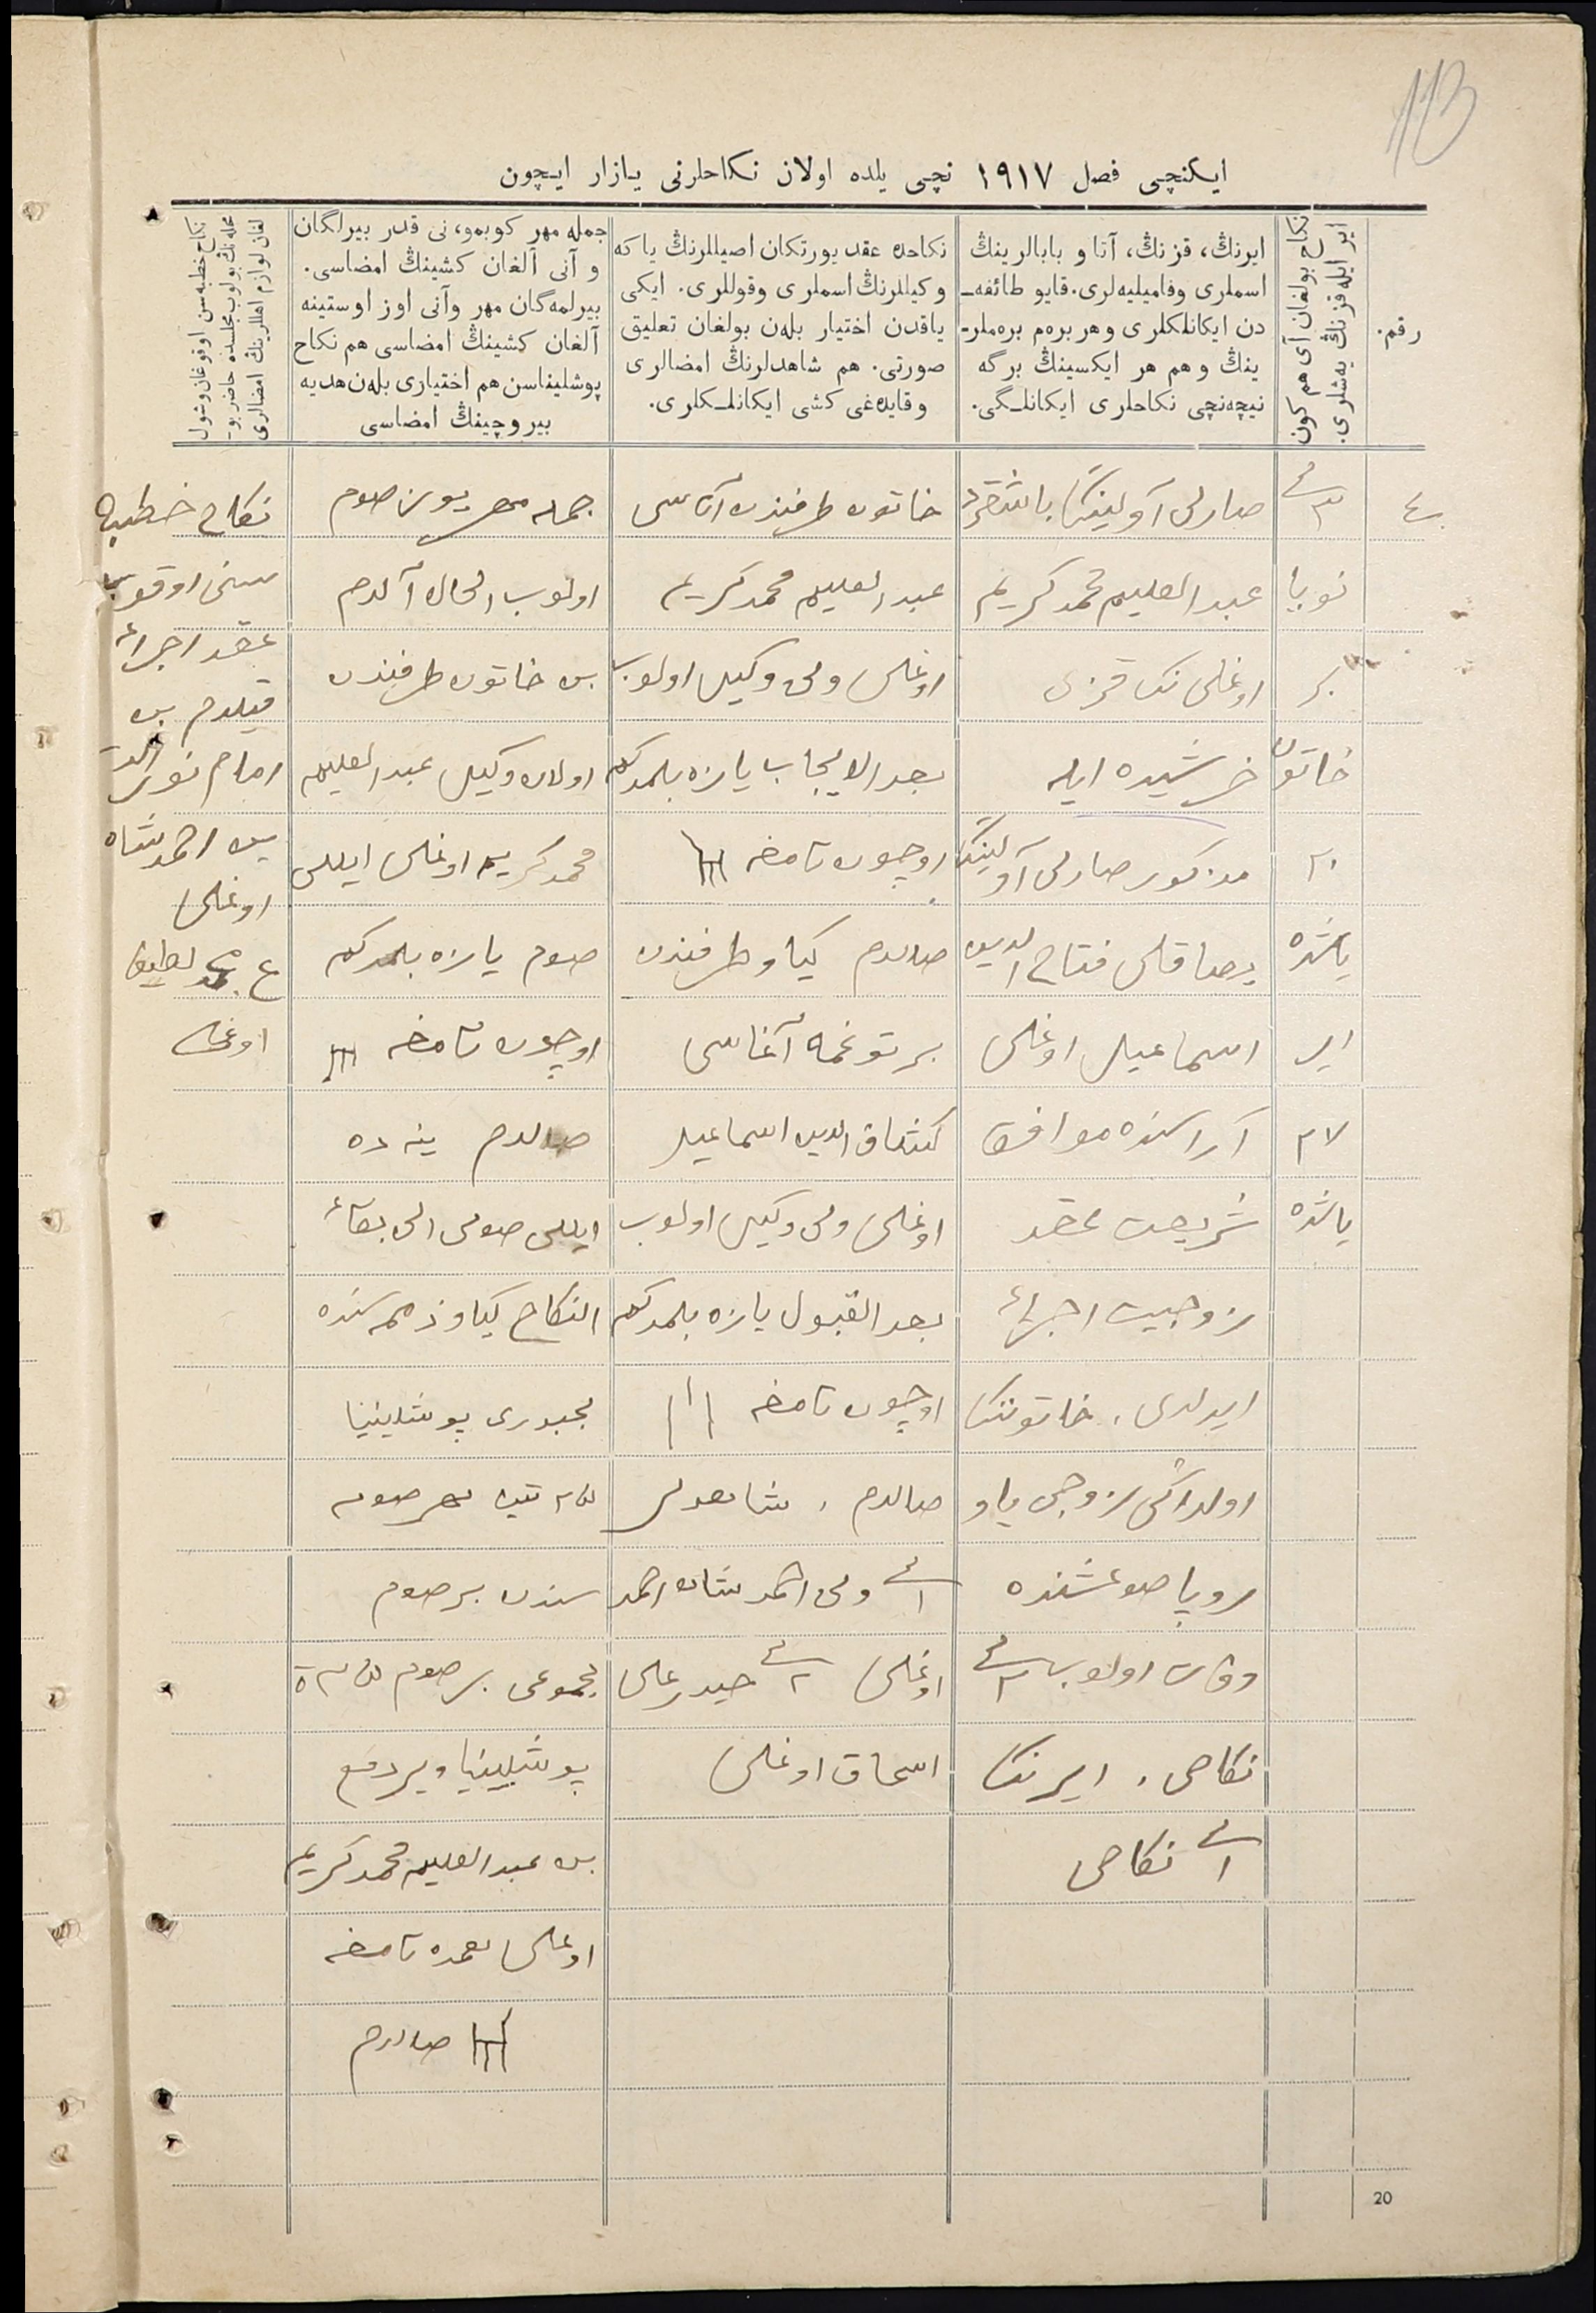 113
ایکنچی فصل ۱۹۱۷ نچی یلده اولان نکاحلرنی یازار ایچون
رقم.
ایر ایله قزنڭ یه‌شلری.
نکاح بولغان آی هم کون
ایرنڭ، قزنڭ، آتا و بابالرینڭ
اسملری وفامیلیه‌لری. قایو طائفه‌ـ
دن ایکانلکلری و هر بره‌م بره‌ملرـ
ینڭ و هم هر ایکسینڭ برگه
نیچه‌نچی نکاحلری ایکانلـگی.
نکاحده عقد یورتکان اصیللرنڭ یا که
وکیللرنڭ اسملری وقوللری. ایکی
یاقدن اختیار بله‌ن بولغان تعلیق
صورتی. هم شاهدلرنڭ امضالری
وقایده‌غی کشی ایکانلـکلری.
جمله مهر کوبمو، نی قدر بیرلگان
و آنی آلغان کشینڭ امضاسی.
بیرلمه‌گان مهر وآنی اوز اوستینه
آلغان کشینڭ امضاسی هم نکاح
پوشلیناسن هم اختیاری بله‌ن هدیه
بیروچینڭ امضاسی
نکاح خطبه‌سن اوقوغان وشول
محله‌نڭ بولوب مجلسده حاضر بوـ
لغان لوازم اهللرینڭ امضالری
٤
۳
نویا
بر
خاتون
۲۰
یاشده
ایر
۲۷
یاشده
صارلی آولینڭ باشقرد
عبد العلیم محمد کریم
اوغلی نڭ قزی
خرشیده ایله
مذکور صارلی آولینڭ
یصاقلی فتاح الدین
اسماعیل اوغلی
آراسنده موافق
شریعت عقد
زوجیت اجراء
ایدلدی، خاتوننڭ
اولداغی زوجی یاو
رویا صوغشنده
وفات اولوب ۲
نکاحی، ایرنڭ
۱ نکاحی
خاتون طرفندن آتاسی
عبد العلیم محمد کریم
اوغلی ولی وکیل اولوب
بعد الایجاب یازه بلمدکم
اوچون تامغه
صالدم کیاو طرفندن
بر توغمه آغاسی
اسماعیل
اوغلی ولی وکیل اولوب
بعد القبول یازه بلمدکم
اوچون تامغه
صالدم، شاهدلر
۱ ولی احمد شاه احمد
اوغلی ۲ حیدر علی
اسحاق اوغلی
جمله مهر یوز صوم
اولوب الحال آلدم
بن خاتون طرفندن
اولان وکیل عبد العلیم
محمد کریم اوغلی ایللی
صوم یازه بلمدکم
اوچون تامغه
صالدم ینه ده
ایللی صومی الی بقاء
النکاح کیاو ذمه سنده
مجبوری پوشلینیا
۲۵ تین هر صوم
سندن بر صوم
مجموعی بر صوم ۲۵ ت
پوشلینیا ویردم
بن عبد العلیم محمد کریم
اوغلی تامغه
صالدم
نکاح خطبه
سنی اوقوب
عقد اجراء
قیلدم بن
امام نور الد
ین احمد شاه
اوغلی
اوغلی
20